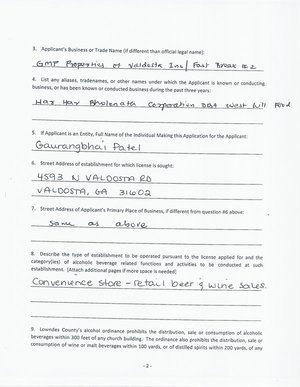 3. Applicant's Business or Trade Name (if different than official legal name):
GMP Properties of Valdosta Inc/ Fast Break # 2
4. List any aliases, tradenames, or other names under which the Applicant is known or conducting
business, or has been known or conducted business during the past three years:
Har Har Bholenath Corporation DBA West Hill Food
5. If Applicant is an Entity, Full Name of the Individual Making this Application for the Applicant:
Gaurangbhai Patel
6. Street Address of establishment for which license is sought:
4593 N VALDOSTA RD
VALDOSTA, GA 31602
7. Street Address of Applicant's Primary Place of Business, if different from question #6 above:
same as above
8. Describe the type of establishment to be operated pursuant to the license applied for and the
category(ies) of alcoholic beverage related functions and activities to be conducted at such
establishment. [Attach additional pages if more space is needed]
Convenience store - retail beer & wine sales.
9. Lowndes County's alcohol ordinance prohibits the distribution, sale or consumption of alcoholic
beverages within 300 feet of any church building. The ordinance also prohibits the distribution, sale or
consumption of wine or malt beverages within 100 yards, or of distilled spirits within 200 yards, of any
- 2 -